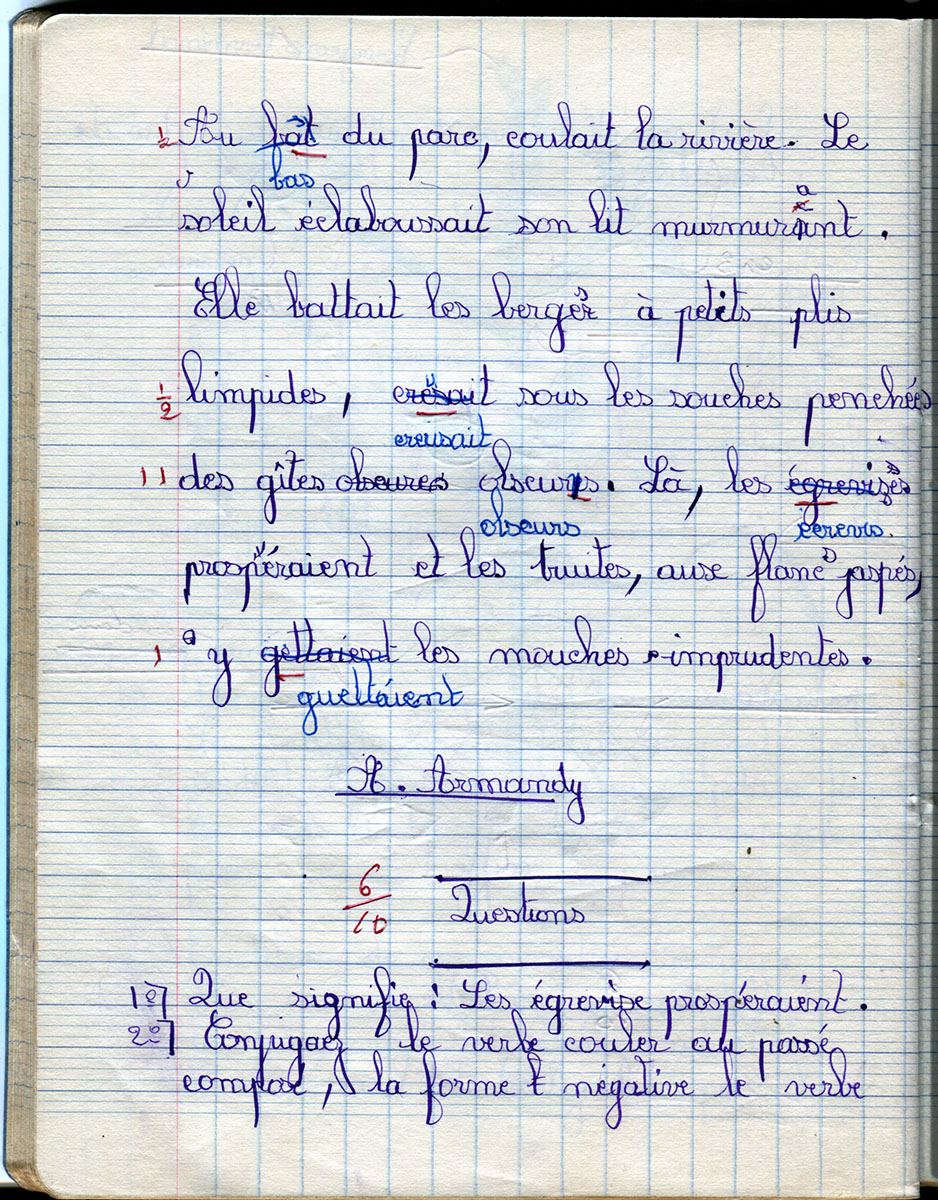 ½ Au bât du parc, coulait la rivière. Le
bas
soleil éclaboussait son lit murmurant.
Elle battait les berges à petits plis
½ limpides, creusait sous les souches penchées
creusait
11 des gîtes obscures obscurs. Là, les égrevisses
obscurs écrevis.
prospéraient et les truites, aux flancs jaspés,
1 y gettaient les mouches imprudentes.
guettaient
A. Armandy
6/10 Questions
1º] Que signifie : Les égrevise prospéraient.
2º] Conjuguez le verbe couler au passé
composé, à la forme négative le verbe